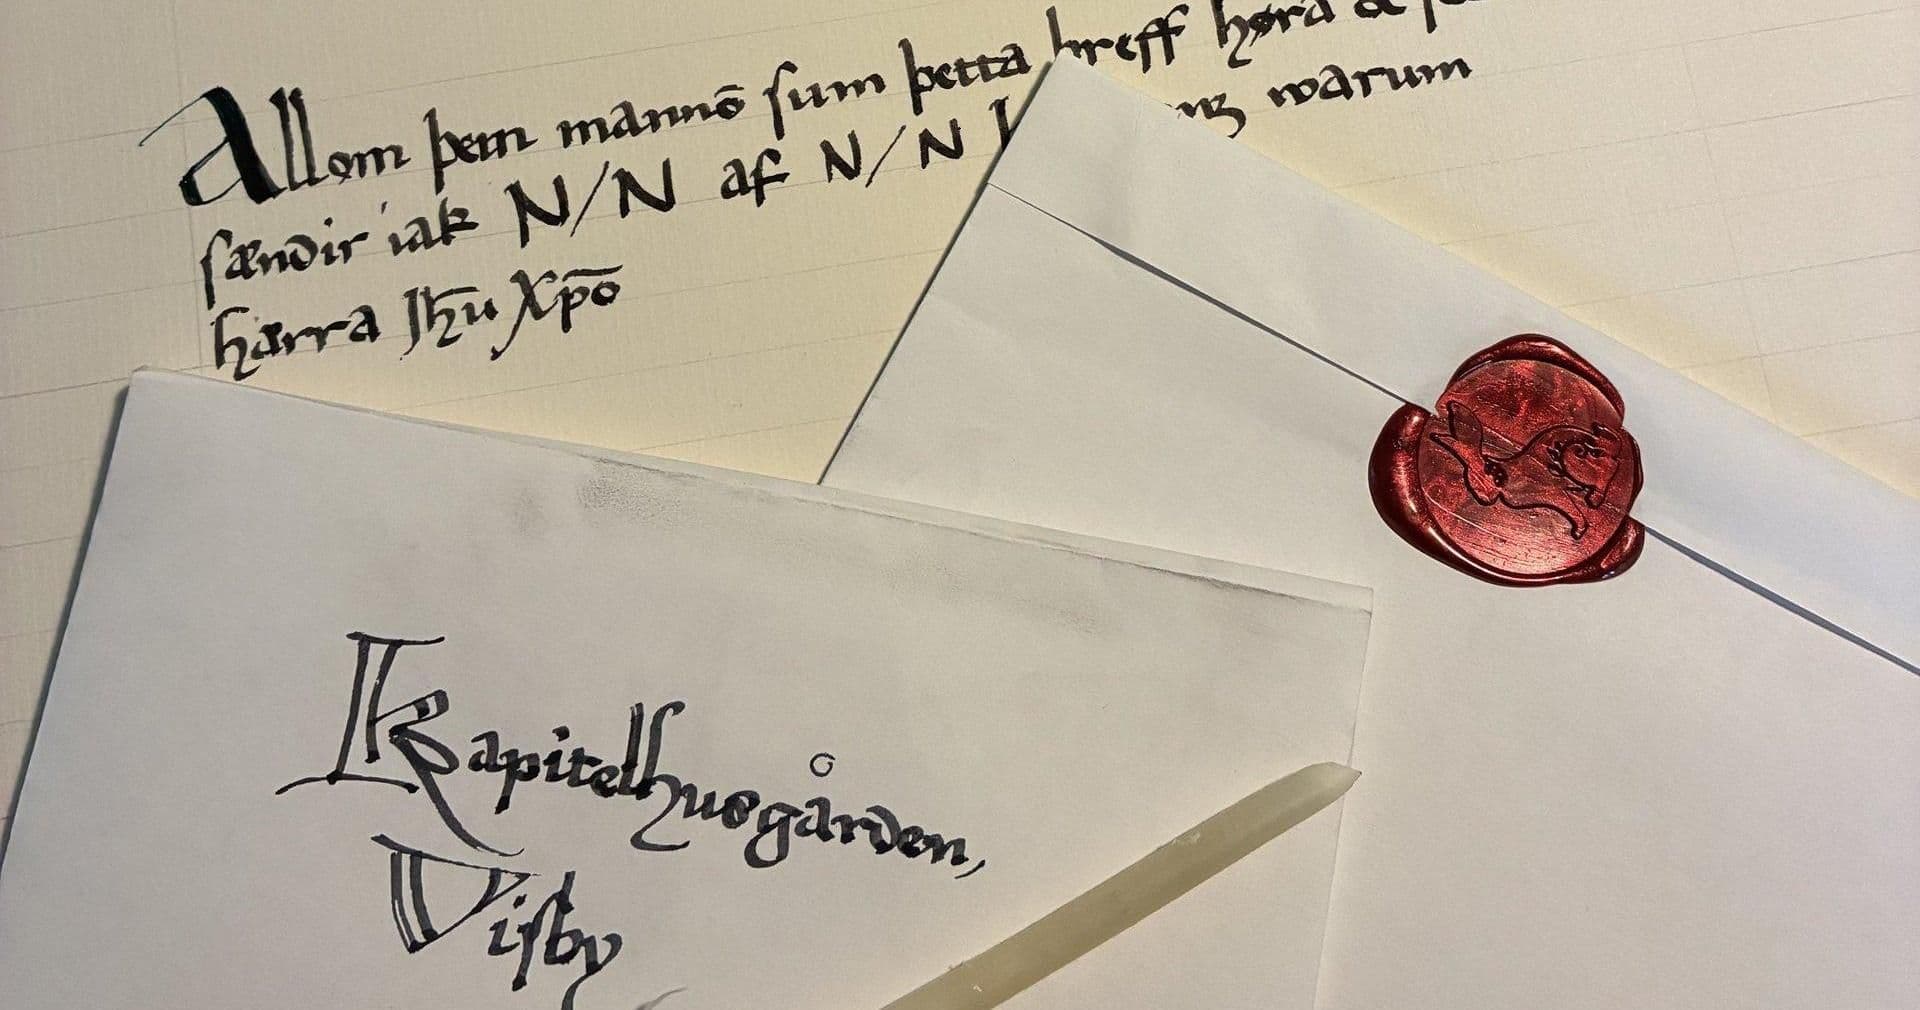 Allom þem mannō sum þetta breff høra oc
sændir iak N/N af N/N warum
hærra Jhū Xpō
Kapitelhusgården,
Visby